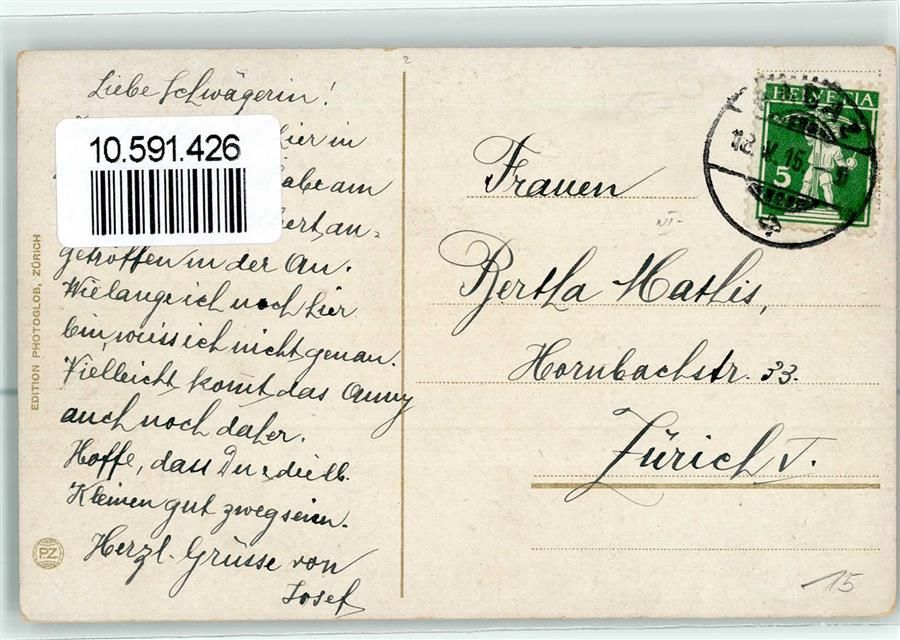 Liebe Schwägerin!
hier in
10.591.426
habe am
an=
getroffen in der An.
Wielange ich noch hier
bin, weiss ich nicht genau.
Vielleicht komt das Anny
auch noch daher.
Hoffe, dass Du & die lb.
Kleinen gut zweg seien.
Herzl. Grüsse von
Josef
EDITION PHOTOGLOB, ZÜRICH
PZ
HELVETIA
5
Frauen
Bertha Mathis,
Hornbachstr. 33.
Zürich V.
15